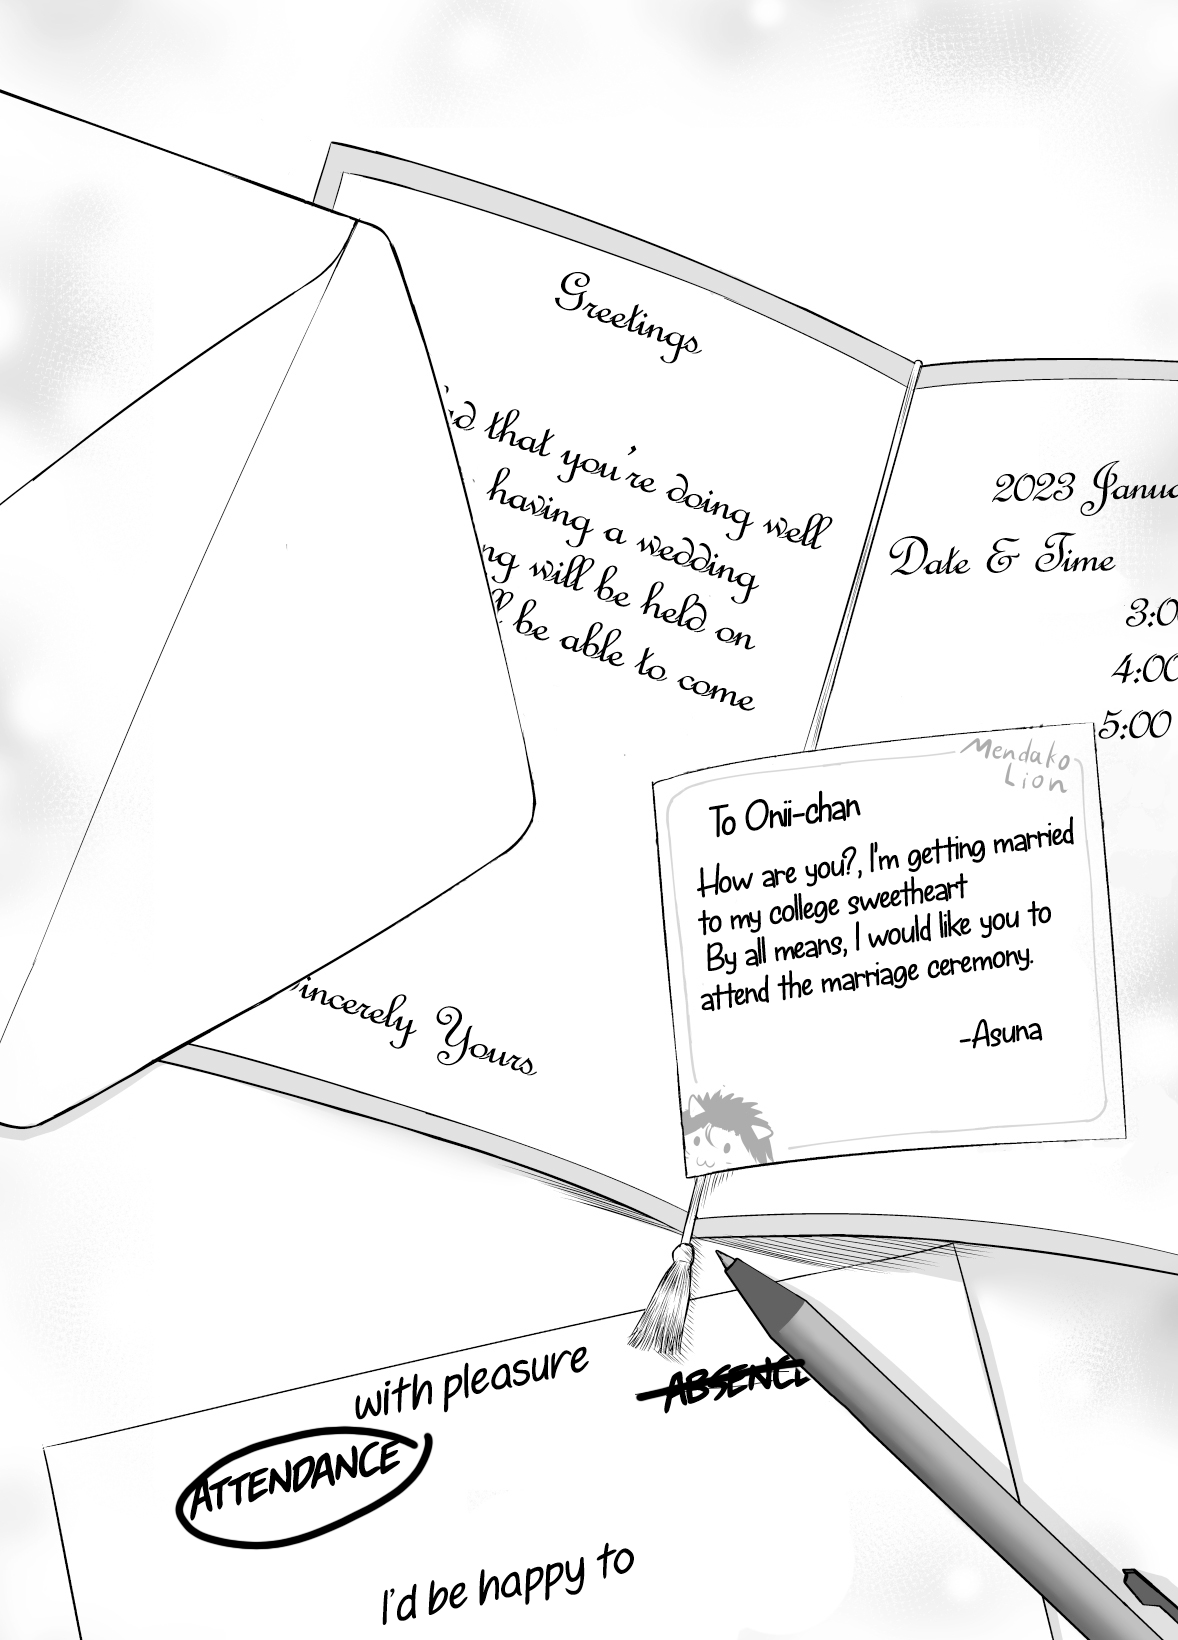 Greetings
that you're doing well
having a wedding
will be held on
be able to come
Sincerely Yours
2023
Date & Time
4:00
5:00
Mendako
Lion
To Onii-chan
How are you?, I'm getting married
to my college sweetheart
By all means, I would like you to
attend the marriage ceremony.
-Asuna
with pleasure
ABSENCE
ATTENDANCE
I'd be happy to